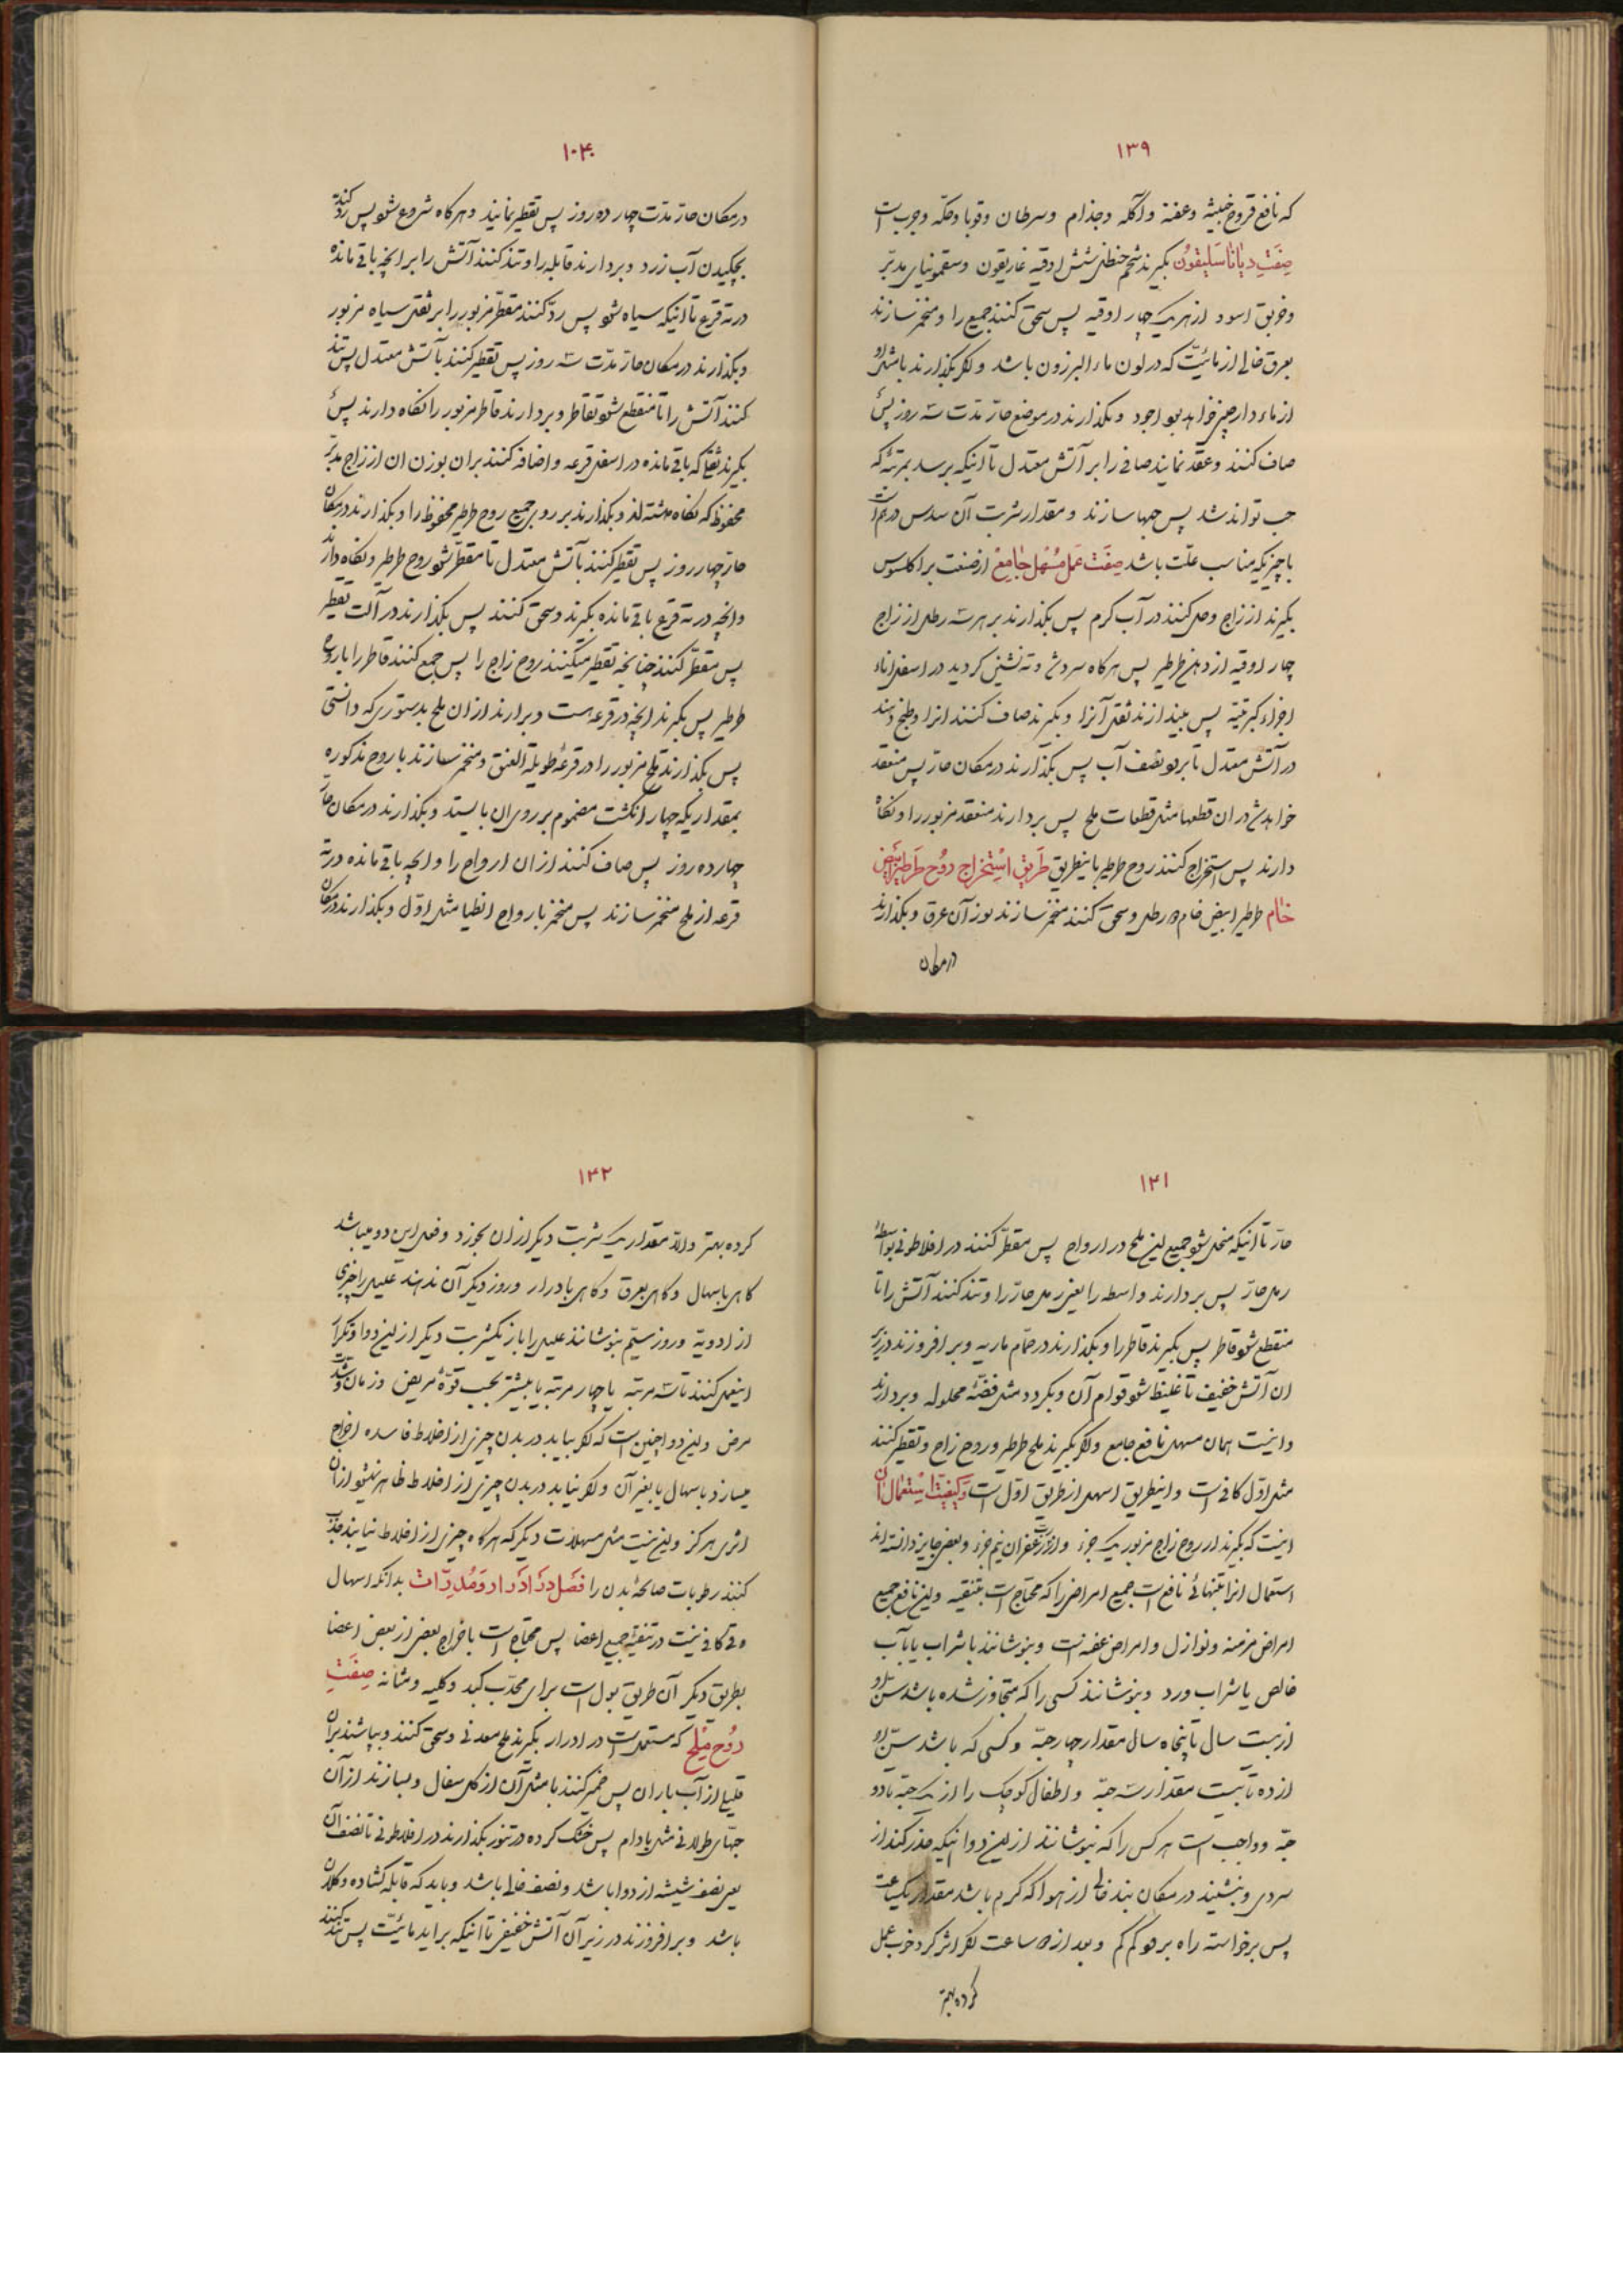 ۱۳۹
که نافع قروح خبیثه وعفنه وآکله وجذام وسرطان وقوبا وحکه وجرب است
صِفَتِ دیاناسَلیقُون بگیرند شحم حنظل شش اوقیه غاریقون وسقمونیای مدبّر
وخربق اسود از هر یک چهار اوقیه پس سحق کنند جمیع را ومخمّر سازند
بعرق خالی از مائیّت که در لون ماء البرزون باشد و اگر بگذارند باشد
از ماء دارچینی خواهد بود اجود وبگذارند در موضع حارّ مدّت سه روز پس
صاف کنند وعقد نمایند صافی را بر آتش معتدل تا اینکه برسد بمرتبهٔ که
حب تواند شد پس حبها سازند ومقدار شربت آن سدس درهم است
با چیزیکه مناسب علّت باشد صِفَت عَمَل مُسْهِل جامِعْ از صنعت براکلسوس
بگیرند از زاج وحل کنند در آب گرم پس بگذارند بر هر سه رطل از زاج
چهار اوقیه از دهن طرطیر پس هرگاه سرد شود وته نشین گردید در اسفل اناء
اجزاء کبریتیّه پس بیندازند ثفل آنرا وبگیرند صاف کنند انرا وطبخ دهند
در آتش معتدل تا برود نصف آب پس بگذارند در مکان حارّ پس منعقد
خواهد شد در ان قطعها مثل قطعات ملح پس بردارند منعقد مزبور را ونگاه
دارند پس استخراج کنند روح طرطیر باینطریق طَریق اسْتِخراج رُوح طَرطیر اَبیَض
خام طرطیر ابیض خام ده رطل وسحق کنند مخمّر سازند بوزن آن عرق وبگذارند
در مکان
۱۰۴۰
در مکان حارّ مدّت چهارده روز پس تقطیر نمایند وهرگاه شروع شود پس رد کنند
بچکیدن آب زرد وبردارند قابله را وتند کنند آتش را بر انچه باقی مانده
در ته قرع تا اینکه سیاه شود پس ردّ کنند مقطّر مزبور را بر ثفل سیاه مزبور
وبگذارند در مکان حارّ مدّت سه روز پس تقطیر کنند بآتش معتدل پس تند
کنند آتش را تا منقطع شود تقاطر وبردارند قاطر مزبور را نگاه دارند پس
بگیرند ثفلی که باقی مانده در اسفل قرعه واضافه کنند بران بوزن ان از زاج مدبّر
محفوظ که نگاه داشته اند وبگذارند بر روی جمیع روح طرطیر محفوظ را وبگذارند در مکان
حارّ چهار روز پس تقطیر کنند بآتش معتدل تا مقطّر شود روح طرطیر ونگاه دارند
وانچه در ته قرع باقی مانده بگیرند وسحق کنند پس بگذارند در آلت تقطیر
پس مقطّر کنند چنانچه تقطیر میکنند روح زاج را پس جمع کنند قاطر را با روح
طرطیر پس بگیرند انچه در قرعه است وبرارند از ان ملح بدستوری که دانستی
پس بگذارند ملح مزبور را در قرعهٔ طویلة العنق ومخمّر سازند با روح مذکوره
بمقداریکه چهار انگشت مضموم بر روی ان بایستد وبگذارند در مکان حارّ
چهارده روز پس صاف کنند از ان ارواح را وانچه باقی مانده در ته
قرعه از ملح مخمّر سازند پس مخمّر بارواح انطیا مثل اوّل وبگذارند در مکان
۱۲۱
حارّ تا اینکه منحل شود جمیع این ملح در ارواح پس مقطّر کنند در افلاطونی بواسطهٔ
رمل حارّ پس بردارند واسطه را یعنی رمل حارّ را وتند کنند آتش را تا
منقطع شود قاطر پس بگیرند قاطر را وبگذارند در حمّام ماریه وبرافروزند در زیر
ان آتش خفیف تا غلیظ شود قوام آن وبگردد مثل فضّهٔ محلوله وبردارند
واینست همان مسهل نافع جامع واگر بگیرند ملح طرطیر وروح زاج وتقطیر کنند
مثل اوّل کافی است واینطریق اسهل از طریق اوّل است وَکیفیّت اسْتِعمال آن
اینست که بگیرند از روح زاج مزبور یک جزء واز زعفران نیم جزء وبعضی جایز دانسته اند
استعمال انرا بتنهائی نافع است جمیع امراض را که محتاج است بتنقیه واین نافع جمیع
امراض مزمنه ونوازل وامراض عفنه است وبنوشانند با شراب یا باآب
خالص یا شراب ورد وبنوشانند کسی را که متجاوز شده باشد سنّ او
از بیست سال تا پنجاه سال مقدار چهار حبّه وکسی که باشد سنّ او
از ده تا بیست مقدار سه حبّه واطفال کوچک را از یک حبّه تا دو
حبّه وواجب است هر کس را که بنوشانند از این دوا اینکه حذر کند از
سردی وبنشیند در مکان بند خالی از هوا که گرم باشد مقدار یکساعت
پس برخواسته راه برود کم کم وبعد از ساعت اگر اثر کرد خوب عمل
کرده بهتر
۱۴۲
کرده بهتر والّا مقدار یک شربت دیگر از ان بخورد وفعل این دوا میباشد
گاهی باسهال وگاهی بعرق وگاهی بادرار وروز دیگر آن ندهند علیل را چیزی
از ادویه وروز سیّم بنوشانند علیل را باز یکشربت دیگر از این دوا وتکرار
اینعمل کنند تا سه مرتبه یا چهار مرتبه یا بیشتر بحسب قوّهٔ مریض وزمان وشدّت
مرض واین دوا چنین است که اگر بیابد در بدن چیزی از اخلاط فاسده اخراج
میسازد باسهال یا بغیر آن واگر نیابد در بدن چیزی از اخلاط ظاهر نیشود از ان
اثری هرگز واین نیست مثل مسهلات دیگر که هرگاه چیزی از اخلاط نیابند جذب
کنند رطوبات صالحهٔ بدن را فَصْل دَر اِدْرار وَمُدِرّات بدانکه اسهال
وقی کافی نیست در تنقیهٔ جمیع اعضا پس محتاج است باخراج بعضی از بعض اعضا
بطریق دیگر آن طریق بول است برای محدّب کبد وکلیه ومثانه صِفَتِ
رُوح مِلْح که مستعمل است در ادرار بگیرند ملح معدنی وسحق کنند وبپاشند بران
قلیلی از آب باران پس خمیر کنند با مثل آن از گل سفال وبسازند از ان
حبّهای طولانی مثل بادام پس خشک کرده در تنور بگذارند در افلاطونی تا نصف آن
یعنی نصف شیشه از دوا باشد ونصف خالی باشد وباید که قابله گشاده وکلان
باشد وبرافروزند در زیر آن آتش خفیفی تا اینکه براید مائیّت پس تند کنند